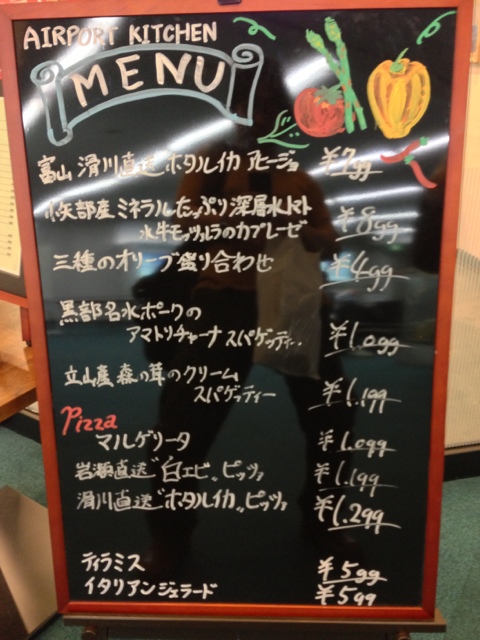 AIRPORT KITCHEN
MENU
富山 滑川直送 ホタルイカ アヒージョ ¥799
小矢部産ミネラルたっぷり深層水トマト
水牛モッツァレラのカプレーゼ ¥899
三種のオリーブ盛り合わせ ¥499
黒部名水ポークの
アマトリチャーナ スパゲッティー ¥1.099
立山産 森の茸のクリーム
スパゲッティー ¥1.199
Pizza
マルゲリータ ¥1.099
岩瀬直送"白エビ"ピッツァ ¥1.199
滑川直送"ホタルイカ"ピッツァ ¥1.299
ティラミス ¥599
イタリアンジェラード ¥599